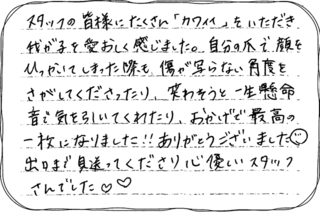 スタッフの皆様にたくさん「カワイイ」をいただき
我が子を愛おしく感じました。自分の爪で顔を
ひっかいてしまった際も傷が写らない角度を
さがしてくださったり、笑わそうと一生懸命
音で気を引いてくれたり、おかげで最高の
一枚になりました!!ありがとうございました
出口まで見送ってくださり心優しいスタッフ
さんでした♡♡